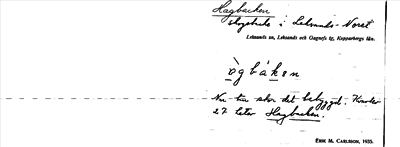 Hagbacken
skogstrakt i Leksands-Noret
Leksands sn, Leksands och Gagnefs tg, Kopparbergs län.
ògbákεn
Nu tun skor det bebyggt. Kvarter
27 heter Hagbacken.
ERIK M. CARLSSON, 1935.